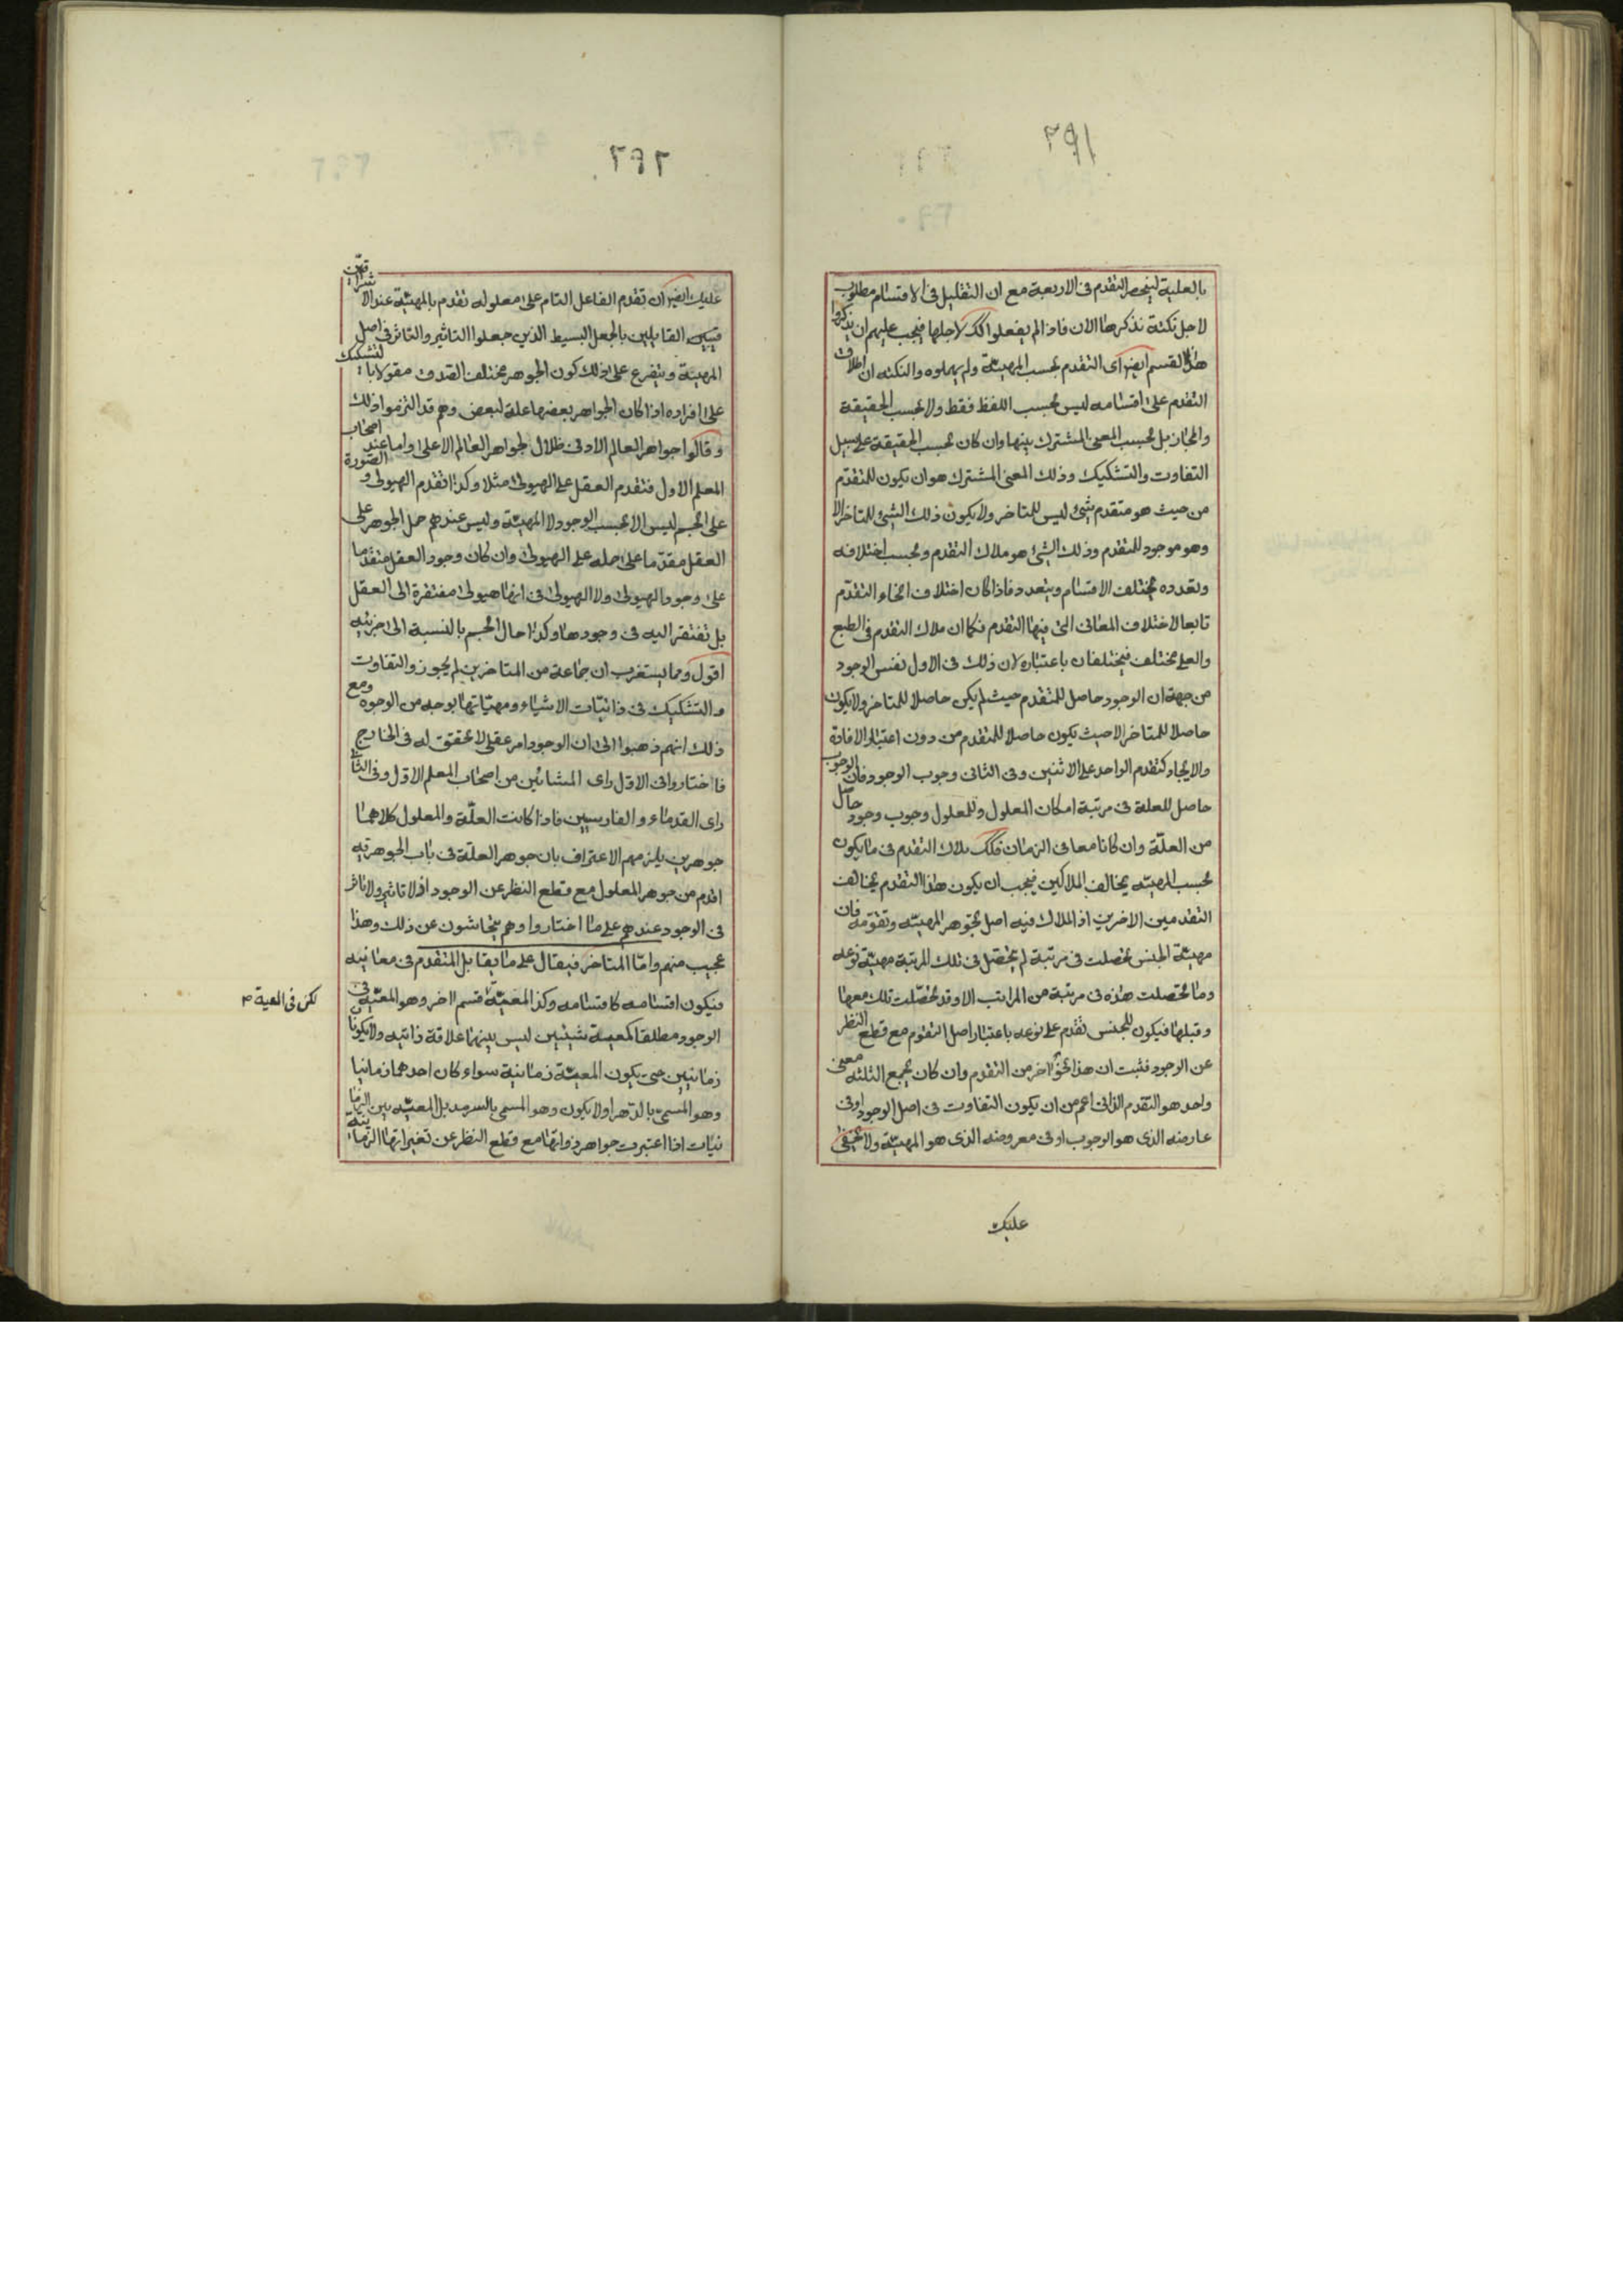 ٢٩١
بالعلية لينحصر التقدم فى الاربعة مع ان التقليل فى الاقسام مطلوب
لاجل نكتة نذكرها الان فاذا لم يفعلوا كك لاجلها فيجب عليهم ان يذكروا
هذا القسم ايضا اى التقدم بحسب المهيّة ولم يهملوه والنكته ان اطلاق
التقدم على اقسامه ليس بحسب اللفظ فقط ولا بحسب الحقيقة
والمجاز بل بحسب المعنى المشترك بينها وان كان بحسب الحقيقة على سبيل
التفاوت والتشكيك وذلك المعنى المشترك هو ان يكون للمتقدّم
من حيث هو متقدم شئ ليس للمتاخر ولا يكون ذلك الشئ للمتاخر الا
وهو موجود للمتقدم وذلك الشئ هو ملاك التقدم وبحسب اختلافه
وتعدده يختلف الاقسام ويتعدد فاذا كان اختلاف انحاء التقدّم
تابعا لاختلاف المعانى التى فيها التقدم فكما ان ملاك التقدم فى الطبع
والعلى مختلف فيختلفان باعتباره لان ذلك فى الاول نفس الوجود
من جهة ان الوجود حاصل للمتقدم حيث لم يكن حاصلا للمتاخر ولا يكون
حاصلا للمتاخر الا حيث يكون حاصلا للمتقدم من دون اعتبار الافادة
والايجاد كتقدم الواحد على الاثنين وفى الثانى وجوب الوجود فان الوجوب
حاصل للعلة فى مرتبة امكان المعلول وللمعلول وجوب وجود حاصل
من العلّة وان كانا معا فى الزمان فكك ملاك التقدم فى ما يكون
بحسب المهيّه يخالف الملاكين فيجب ان يكون هذا التقدم يخالف
التقدمين الاخرين اذ الملاك فيه اصل تجوهر المهيّه وتقومه فان
مهيّة الجنس تحصلت فى مرتبة لم يتحصّل فى تلك المرتبة مهيّة نوعه
وما تحصلت هذه فى مرتبة من المراتب الا وقد تحصّلت تلك معها
وقبلها فيكون للجنس تقدم على نوعه باعتبار اصل التقوم مع قطع النظر
عن الوجود فثبت ان هذا نحوٌ اخر من التقدم وان كان يجمع الثلثه معنى
واحد هو التقدم الذاتى اعم من ان يكون التفاوت فى اصل الوجود او فى
عارضه الذى هو الوجوب او فى معروضه الذى هو المهيّة ولا يخفى
عليك
٢٩٢
عليك ايضا ان تقدم الفاعل التام على معلوله تقدم بالمهيّة عند الاشرا
قيين القايلين بالجعل البسيط الذين جعلوا التاثير والتاثر فى اصل
المهيّة ويتفرع على ذلك كون الجوهر مختلف الصدق مقولا بالتشكيك
على افراده اذا كان الجواهر بعضها علة لبعض وهم قد التزموا ذلك
وقالوا جواهر العالم الادنى ظلال لجواهر العالم الاعلى واما عند اصحاب
المعلم الاول فتقدم العقل على الهيولى مثلا وكذا تقدم الهيولى والصورة
على الجسم ليس الا بحسب الوجود لا المهيّة وليس عندهم حمل الجوهر على
العقل مقدّما على حمله على الهيولى وان كان وجود العقل متقدما
على وجود الهيولى ولا الهيولى فى انها هيولى مفتقرة الى العقل
بل تفتقر اليه فى وجودها وكذا حال الجسم بالنسبة الى جزئيه
اقول ومما يستغرب ان جماعة من المتاخرين لم يجوزوا التفاوت
والتشكيك فى ذاتيّات الاشياء ومهيّاتها بوجه من الوجوه ومع
ذلك انهم ذهبوا الى ان الوجود امر عقلى لا تحقق له فى الخارج
فاختاروا فى الاوّل راى المشائين من اصحاب المعلم الاوّل وفى الثانى
راى القدماء والفارسيين فاذا كانت العلّة والمعلول كلاهما
جوهرين يلزمهم الاعتراف بان جوهر العلّة فى باب الجوهريّه
اقدم من جوهر المعلول مع قطع النظر عن الوجود اذ لا تاثير ولا تاثر
فى الوجود عندهم على ما اختاروا وهم يتحاشون عن ذلك وهذا
عجيب منهم وامّا المتاخر فيقال على ما يقابل المتقدم فى معانيه
فيكون اقسامه كاقسامه وكذا المعيّة قسم اخر وهو المعيّه فى
لكن فى المعية
الوجود مطلقا كمعية شيئين ليس بينهما علاقة ذاتيه ولا يكونان
زمانيين حتى يكون المعيّة زمانية سواء كان احدهما زمانيا
وهو المسمى بالدّهر اولا يكون وهو المسمى بالسرمد بل المعيّه بين الزما
نيات اذا اعتبرت جواهر ذواتها مع قطع النظر عن تغيراتها الزمانيّة